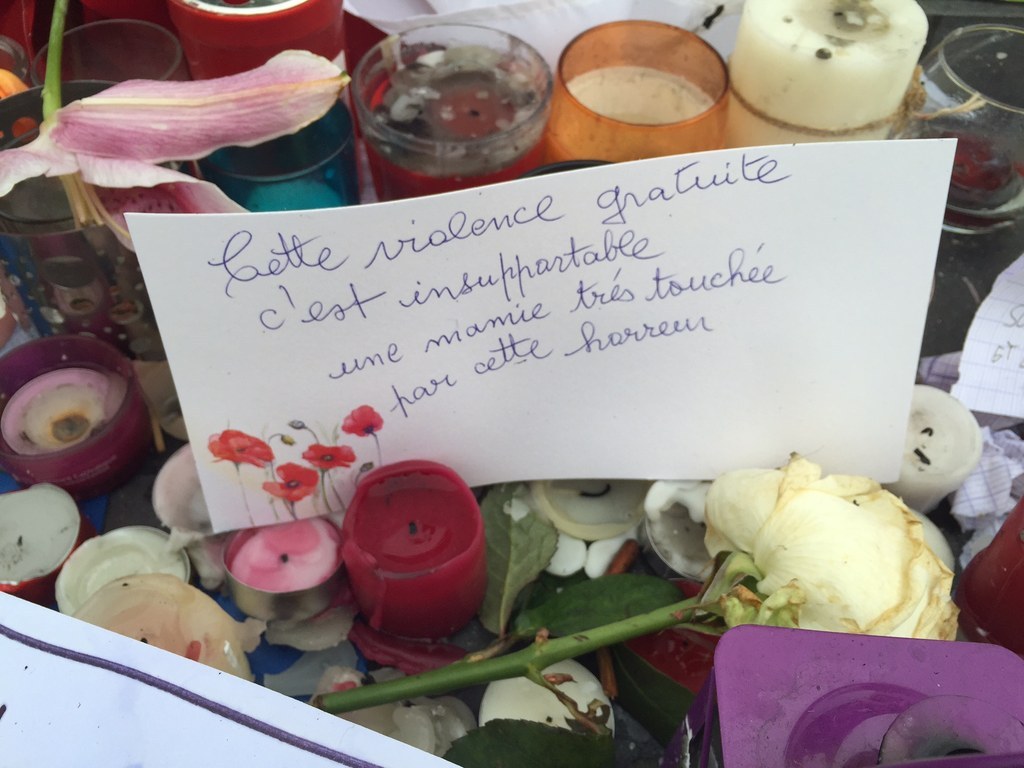 Cette violence gratuite
c'est insupportable
une mamie trés touchée
par cette horreur